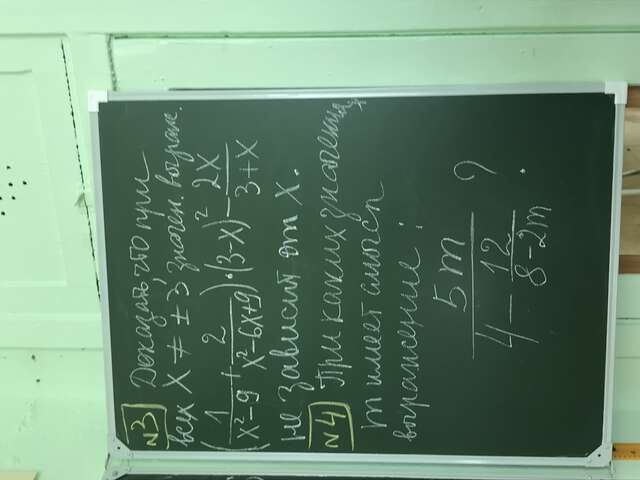 №3 Доказать, что при
всех X ≠ ±3 значен. выраж.
(1/(x²-9) + 2/(x²-6x+9)) · (3-x)² - 2x/(3+x)
не зависит от X.
№4 При каких значениях
m имеет смысл
выражение:
5m/(4 - 12/(8-2m)) ?